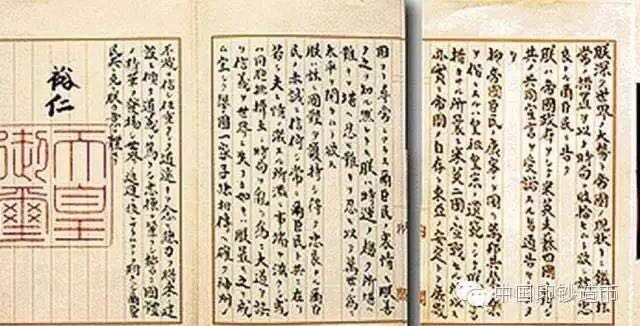 朕深ク世界ノ大勢ト帝國ノ現状トニ鑑ミ非
常ノ措置ヲ以テ時局ヲ收拾セムト欲シ茲ニ忠
良ナル爾臣民ニ告ク
朕ハ帝國政府ヲシテ米英支蘇四國ニ對シ
其ノ共同宣言ヲ受諾スル旨通告セシメタ
リ
抑々帝國臣民ノ康寧ヲ圖リ萬邦共榮ノ樂
ヲ偕ニスルハ皇祖皇宗ノ遺範ニシテ朕ノ拳々
措カサル所曩ニ米英二國ニ宣戰セル所以モ
亦實ニ帝國ノ自存ト東亞ノ安定トヲ庶
固ヨリ尋常ニアラス爾臣民ノ衷情モ朕善
ク之ヲ知ル然レトモ朕ハ時運ノ趨ク所堪ヘ
難キヲ堪ヘ忍ヒ難キヲ忍ヒ以テ萬世ノ爲ニ
太平ヲ開カムト欲ス
朕ハ茲ニ國體ヲ護持シ得テ忠良ナル爾臣
民ノ赤誠ニ信倚シ常ニ爾臣民ト共ニ在リ
若シ夫レ情ノ激スル所濫ニ事端ヲ滋クシ或
ハ同胞排擠互ニ時局ヲ亂リ爲ニ大道ヲ誤
リ信義ヲ世界ニ失フカ如キハ朕最モ之ヲ戒
ム宜シク擧國一家子孫相傳ヘ確ク神州ノ
不滅ヲ信シ任重クシテ道遠キヲ念ヒ總力ヲ將來ノ建
設ニ傾ケ道義ヲ篤クシ志操ヲ鞏クシ誓テ國體
ノ精華ヲ發揚シ世界ノ進運ニ後レサラムコトヲ期スヘシ爾臣
民其レ克ク朕カ意ヲ體セヨ
裕仁
天皇
御璽
中国印钞造币